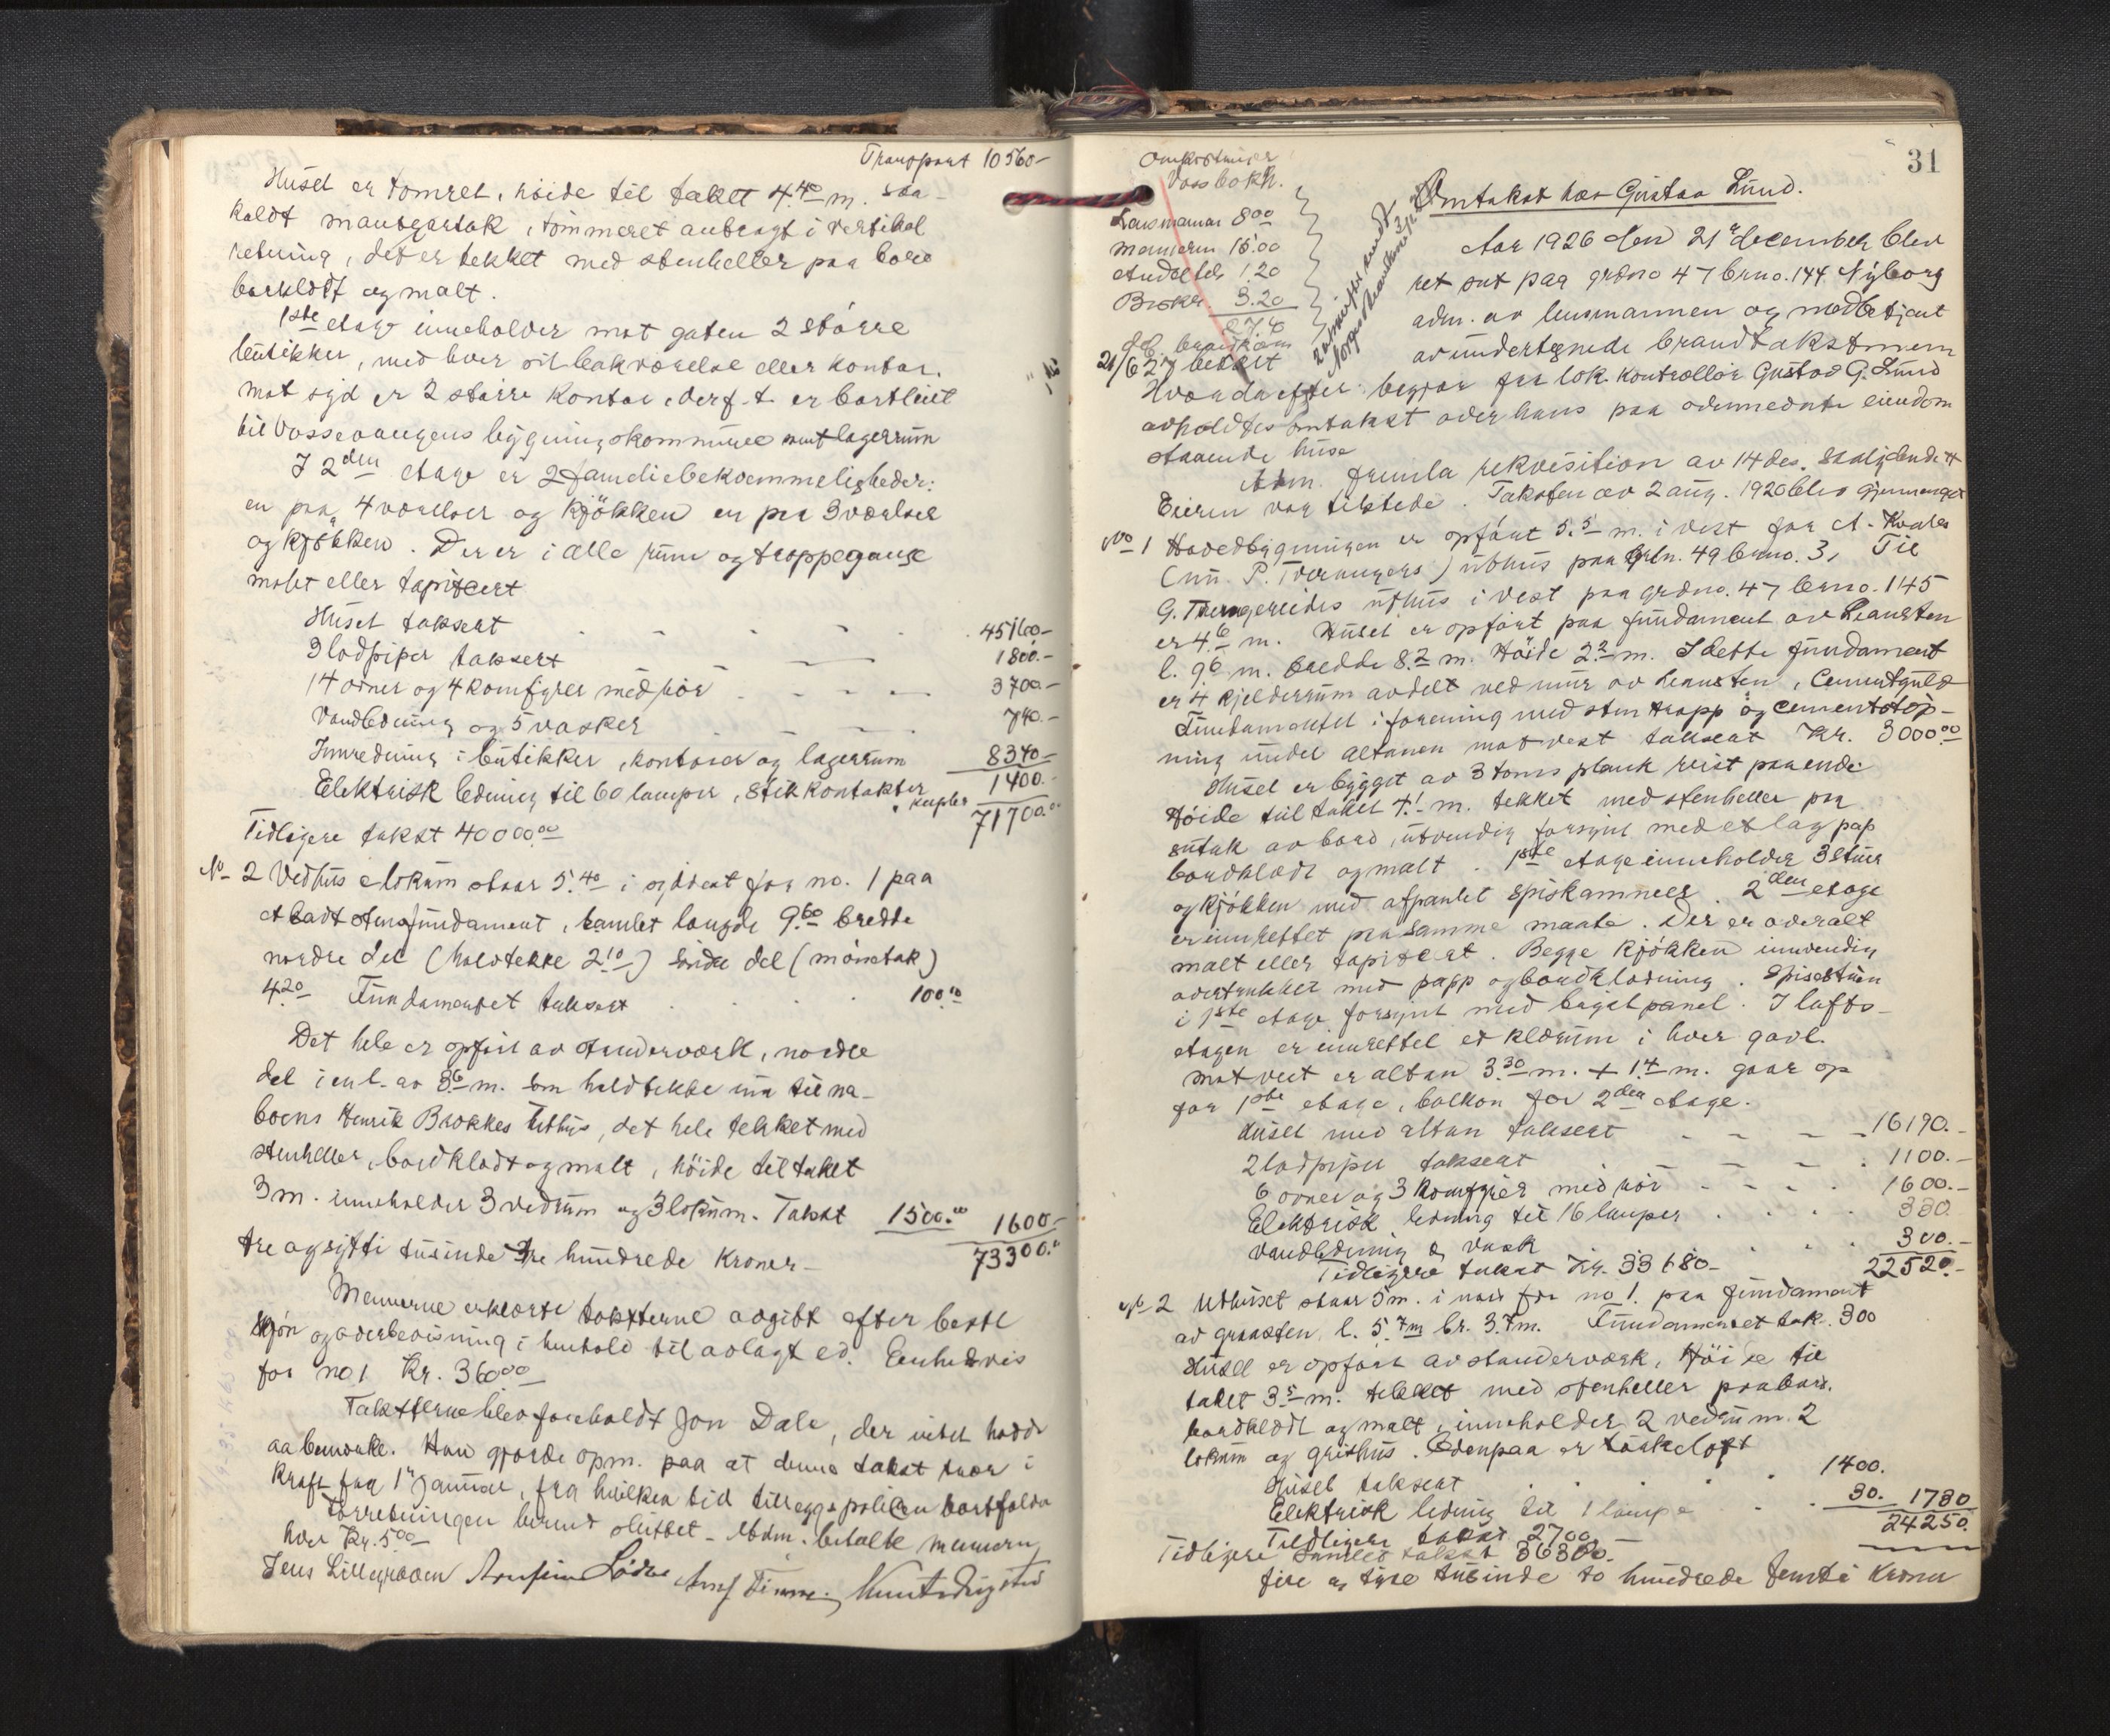 Transport 10560-
Huset er tømret, höide til taket 4.40 m. saa-
kaldt mansgartak, tømmeret anbragt i vertikal
retning, det er tekket med stenheller paa bord
bordklædt og malt.
1ste etage inneholder mot gaten 2 større
butikker, med hver sit bakværelse eller kontor.
mot syd er 2 større kontor, derf. t. er bortleiet
til Vossevangens bygningskommune samt lagerrum
I 2den etage er 2 familiebekvemmeligheder:
en paa 4 værelser og kjøkken en paa 3 værelser
og kjøkken. Der er i alle rum og trappegange
malt eller tapisert
Huset taksert 45160-
3 lodpiper taksert 1800.-
14 ovner og 4 komfyrer med rör 3700-
Vandledning og 5 vasker 740.-
Innredning i butikker, kontorer og lagerrum 8340-
Elektrisk ledning til 60 lamper, stikkontakter 1400.-
kupler 71700.00
Tidligere takst 40000.00
No 2 Vedhus & lokum staar 5.40 i sydvest for no. 1 paa
et stensfundament, samlet længde 9.60 bredde
nordre del (halvtekke 2.10) Söndre del (mönetak)
4.20 Fundamentet taksert 100.00
Det hele er opført av stenderværk, nordre
del i en l. av 3.6 m. som halvtekke inn til na-
boens Henrik Brokkes uthus, det hele tekket med
stenheller, bordklædt og malt, höide til taket
3 m. inneholder 3 vedrum og 3 lokum. Takst 1500.00 1600-
tre og sytti tusinde tre hundrede kroner- 73300.00
Mennerne erklærte taksterne avgitt efter beste
skjön og overbevisning i henhold til avlagt ed. Enhedsvis
for no. 1 Kr. 36000
Taksterne blev foreholdt Jon Dale, der intet hadde
aa bemærke. Han gjorde opm. paa at denne takst træer i
kraft fra 1' januar, fra hvilken tid tilleggspolicen bortfalder
Forretningen dermed sluttet - Adm. betalte mennerne
hver Kr. 5.00
Jens Lillegraven
31
Omkostninger
Vossbokh.
Lensmannen 8.00
Mennerne 15.00
3.20
27.40
21/6 27 betalt
Omtakst hos Gustav Lund.
Aar 1926 den 21' december blev
ret sat paa grdno 47 brno. 144 Nyborg
adm. av lensmannen og medbetjent
av undertegnede brandtakstmenn
Hvorda efter begjær fra lok. kontrollør Gustav G. Lund
avholdtes omtakst over hans paa ovennævnte eiendom
staaende huse
Adm. fremla rekvisition av 14 des.
Eieren var tilstede. Taksten av 2 aug. 1920 blev gjennemgaat
No 1 Hovedbygningen er opført 5.5 m. i vest for A. Kvales
(nu P. Tverangers) uthus paa grbn. 49 brno. 3, Til
G. uthus i vest paa grdno. 47 brno. 145
er 4.6 m. Huset er opført paa fundament av
l. 9.6 m. bredde 8.2 m. Höide 2.2 m. I dette fundament
er 4 kjelderrum avdelt ved mur av, Cementgulv
Fundamentet i forening med sten trapp og cementstöp-
ning under altanen mot vest taksert Kr. 3000.00
Huset er bygget av 3 toms plank reist paa ende
Höide til taket 7.1 m. tekket med stenheller paa
sutak av bord, utvendig forsynt med et lag pap
bordklædt og malt. 1ste etage inneholder 3 stuer
og kjøkken med avpanlet spiskammer. 2den etage
er innrettet paa samme maate. Der er overalt
malt eller tapisert. Begge kjøkken innvendig
overtrukket med papp og bordklædning. Spisestuen
i 1ste etage forsynt med panel. I lofts-
etagen er innrettet et klærum i hver gavl.
Mot vest er altan 3.30 m. + 1.4 m. gaar op
for 1ste etage, balkon for 2den etage.
Huset med altan taksert 16190.-
2 lodpiper taksert 1100.-
6 ovner og 3 komfyrer med rör 1600.-
Elektrisk ledning til 16 lamper 330
Vandledning & vask 300.-
Tidligere takst Kr. 33680- 22520.-
No 2 Uthuset staar 5 m. i nord for no 1. paa fundament
av graasten l. 5.7 m br. 3.7 m. Fundamentet tak. 300
Huset er opført av stenderværk, Höide til
taket 3.5 m. tekket med stenheller paa bord.
bordklædt og malt, inneholder 2 vedrum. 2
lokum og grishus. Ovenpaa er törkeloft
Huset taksert 1400.
Elektrisk ledning til 1 lampe 30. 1730
Tidligere takst 2700 24250.
Tidligere samlet takst 36380.-
fire og tyve tusinde to hundrede femti kroner